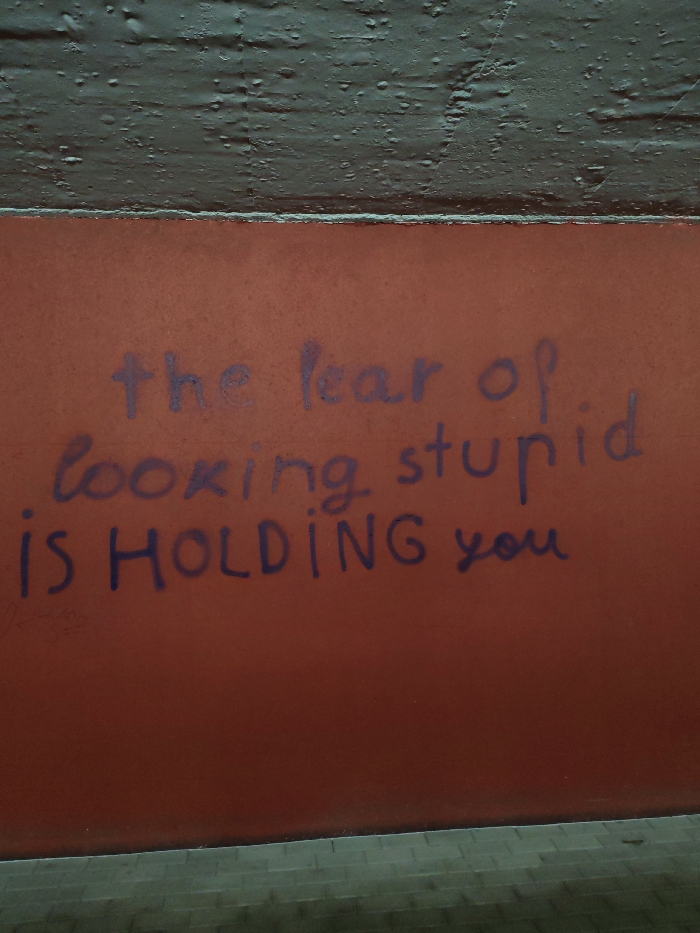 the fear of
looking stupid
is HOLDiNG you